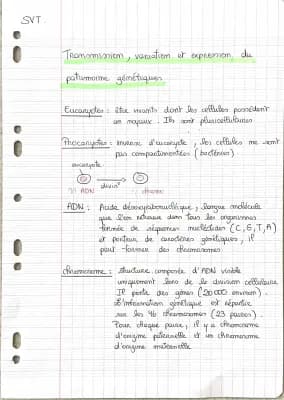 SVT
Transmission, variation et expression du
patrimoine génétique
Eucaryotes : être vivants dont les cellules possèdent
un noyaux. Ils sont pluricellulaires
Procaryotes : inverse d'eucaryote, les cellules ne sont
pas compartimentées (bactéries)
eucaryote
divis°
ADN
chromo
ADN : Acide désoxyribonucléique, longue molécule
que l'on retrouve dans tous les organismes
formée de séquences nucléotides (C, G, T, A)
et porteur de caractères génétiques, il
peut former des chromosomes
Chromosome : structure composée d'ADN visible
uniquement lors de la division cellulaire
Il porte des gènes (20 000 environ).
L'information génétique est répartie
sur les 46 chromosomes (23 paires).
Pour chaque paire, il y a chromosome
d'origine paternelle et un chromosome
d'origine maternelle